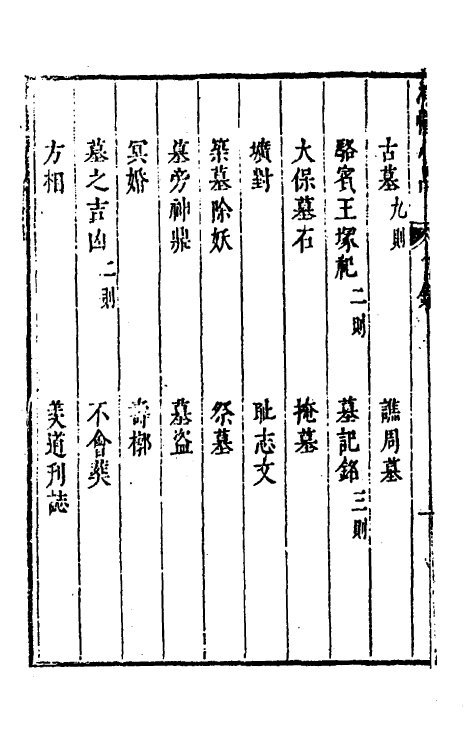 古墓九則　譙周墓
駱賓王塚祀二則　墓記銘三則
大保墓石　掩墓
壙對　耻志文
築墓除妖　祭墓
墓旁神鼎　墓盜
冥婚　壽槨
墓之吉凶二則　不會葬
方相　羨道刋誌